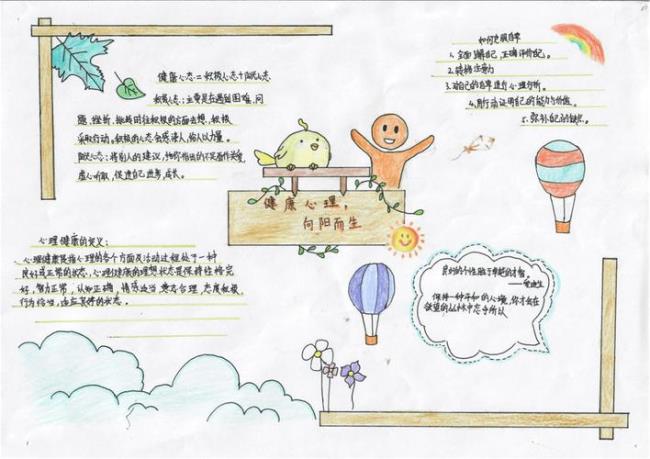 健康心态=积极心态+阳光心态
积极心态:主要是在遇到困难、问
题、挫折、挑战时往积极的方面去想、积极
采取行动。积极的心态会感染人,给人以力量。
阳光心态:将别人的建议,给你指出的不足看作关爱,
虚心听取,促进自己进步、成长。
如何克服自卑
1.全面了解自己,正确评价自己。
2.转移注意力
3.对自己的自卑进行心理分析。
4.用行动证明自己的能力与价值。
5.弥补自己的缺陷。
健康心理,
向阳而生
心理健康的定义:
心理健康是指心理的各个方面及活动过程处于一种
良好或正常的状态。心理健康的理想状态是保持性格完
好,智力正常,认知正确,情感适当,意志合理,态度积极,
行为恰当,适应良好的状态。
良好的个性胜于卓越的才智。
——爱迪生
保持一种平和的心境,你才会在
欲望的丛林中